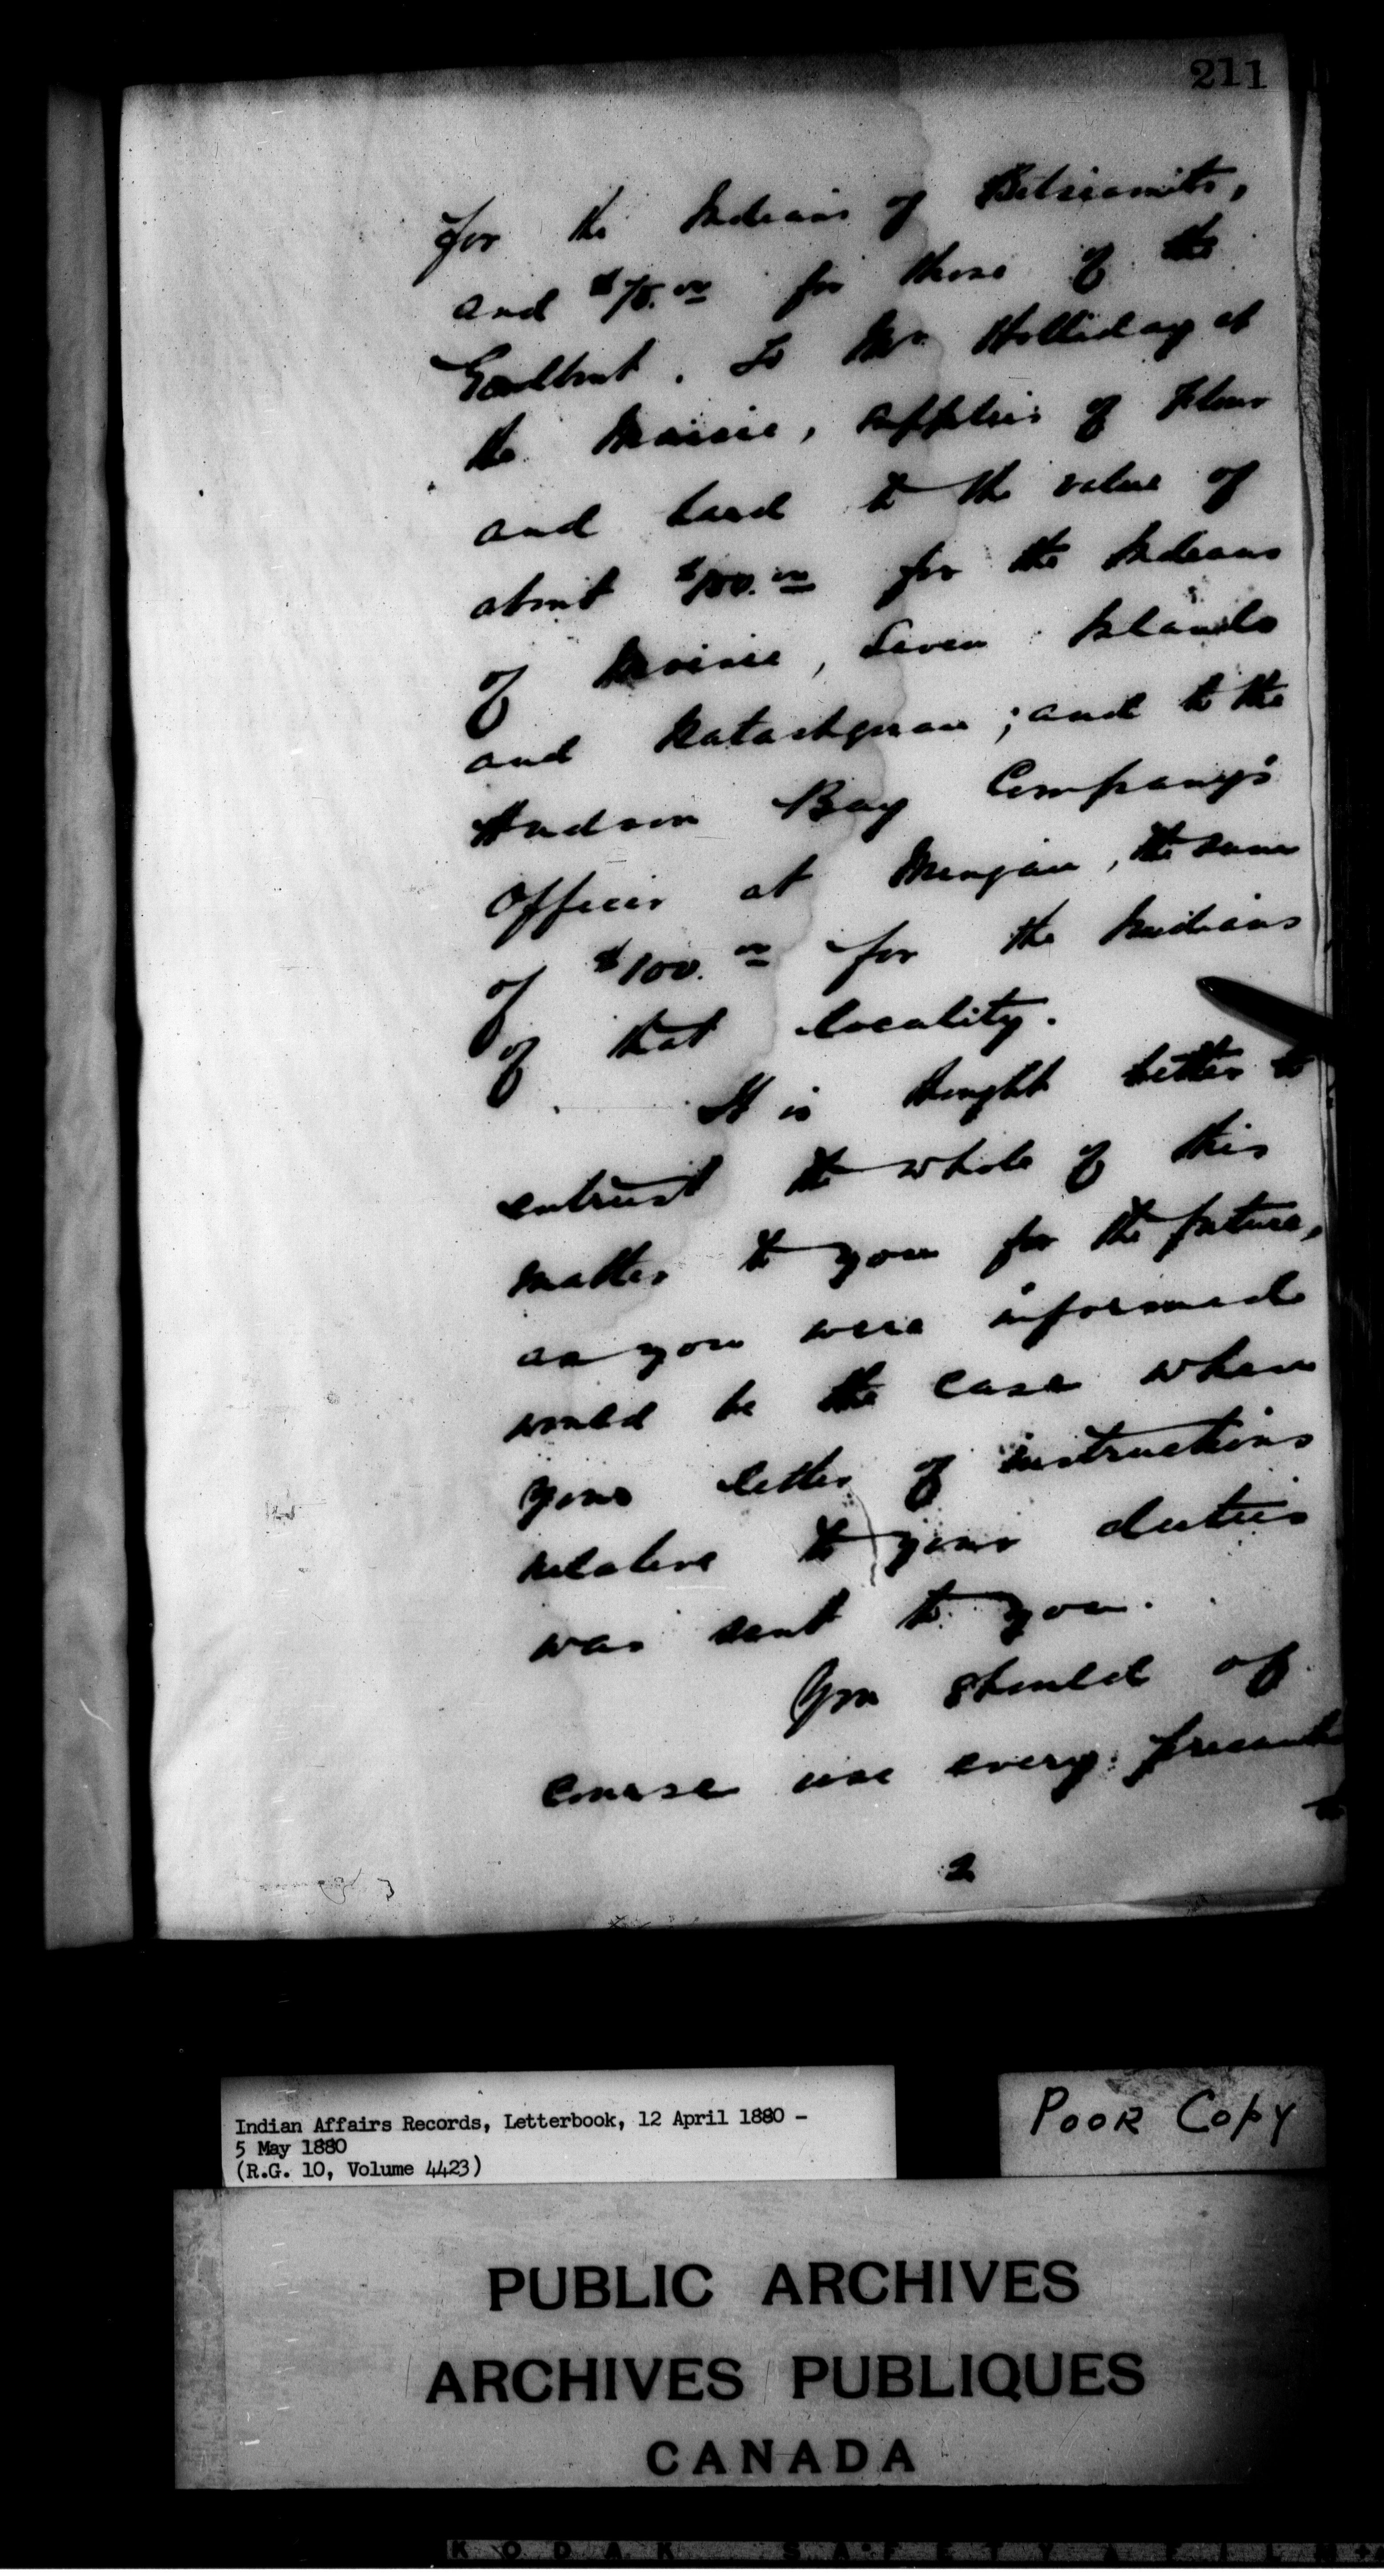 211
for the Indians of Betsiamits,
and $75.00 for those of the
Godbout. To Mr Holliday at
the Moisie, supplies of Flour
and Lard to the value of
about $100.00 for the Indians
of Moisie, Seven Islands
and ; and to the
Hudson Bay Company's
Officer at Mingan, the same
of $100.00 for the Indians
of that locality.
It is thought better to
entrust the whole of this
matter to you for the future,
as you were informed
would be the case when
your letter of instructions
relative to your duties
was sent to you.
You should of
course use every
2
Indian Affairs Records, Letterbook, 12 April 1880 -
5 May 1880
(R.G. 10, Volume 4423)
Poor Copy
PUBLIC ARCHIVES
ARCHIVES PUBLIQUES
CANADA
KODAK SAFETY FILM